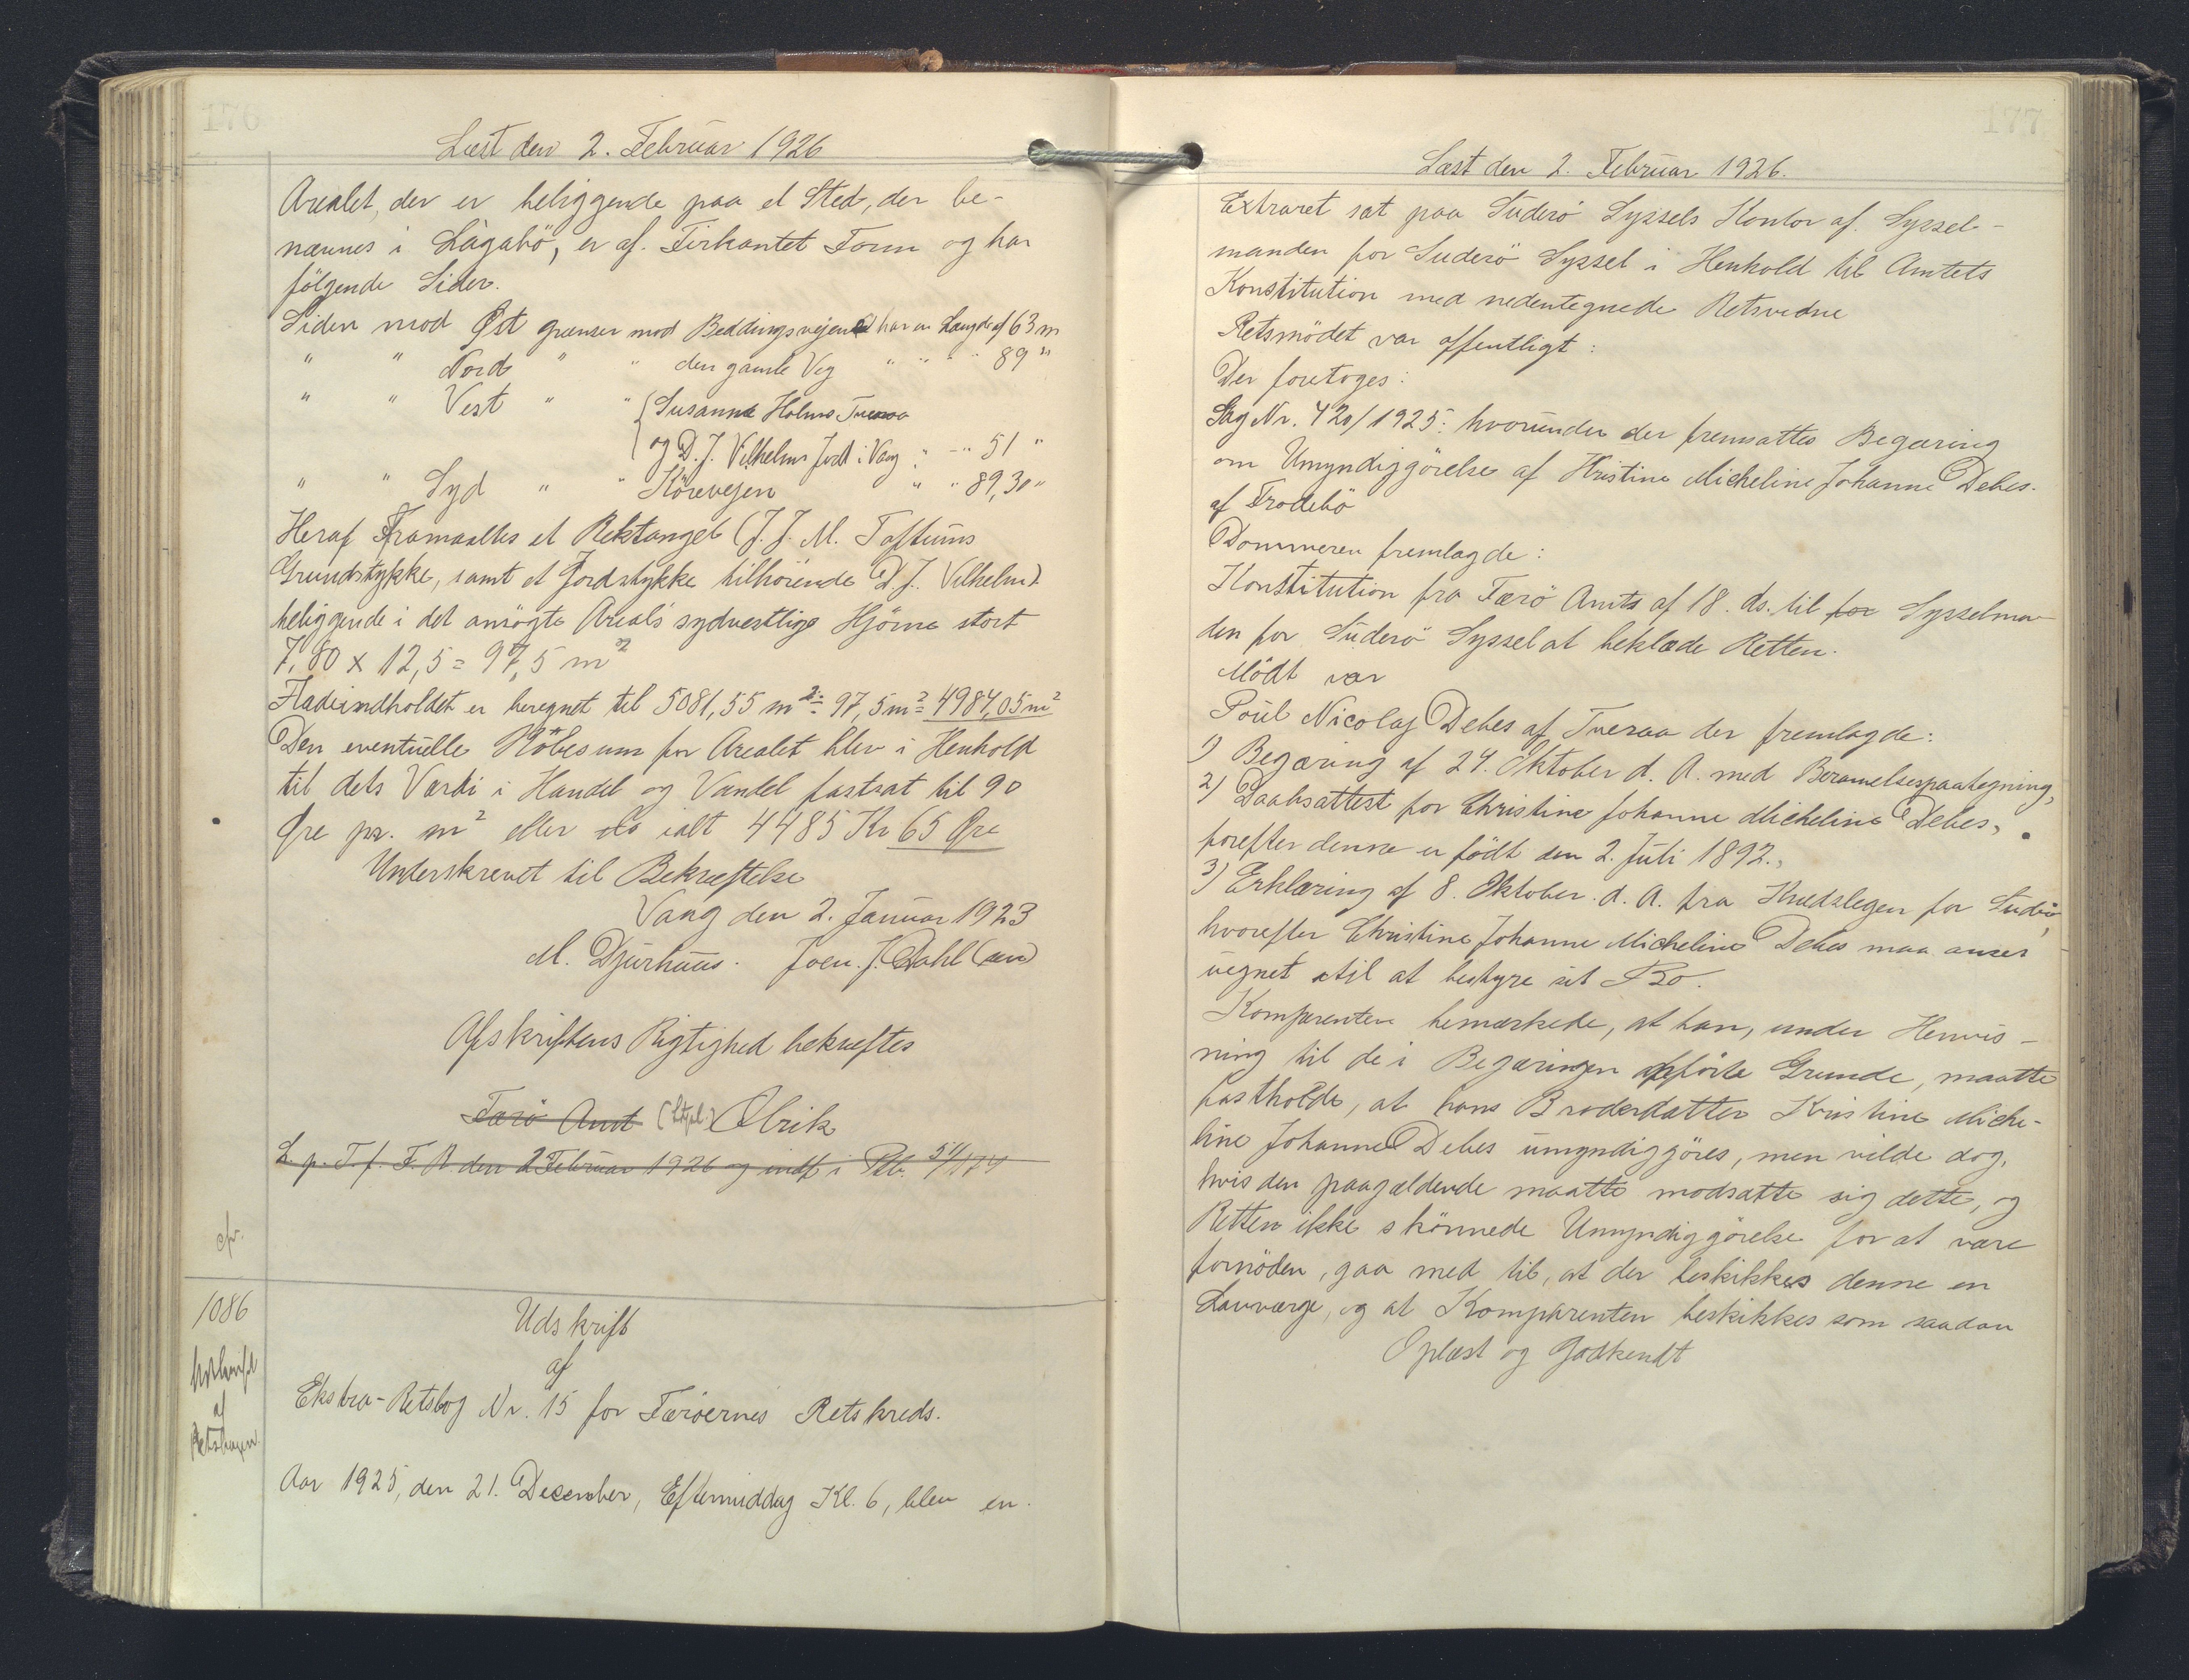 176
Læst den 2. Februar 1926
Arealet, der er beliggende paa et Sted, der be-
nævnes i Lágabö, er af Firkantet Form og har
følgende Sider.
Siden mod Øst grænser mod Beddingsvejen har en Længde af 63 m
" " Nord " " den gamle Vej " " " " 89 "
" " Vest " " { Susanne Holms Tveraa
og D. J. Vilhelms Jord i Vaag " - " 51 "
" " Syd " " Körevejen " " 89,30 "
Heraf Framaaltes et Rektangel (J. J. M. Toftums
Grundstykke, samt et Jordstykke tilhörende D. J. Vilhelm).
beliggende i det ansögte Areals sydvestlige Hjörne stort
7,80 x 12,5 = 97,5 m²
Fladeindholdet er beregnet til 5081,55 m² ÷ 97,5 m² = 4984,05 m²
Den eventuelle Köbesum for Arealet blev i Henhold
til dets Værdi i Handel og Vandel fastsat til 90
Øre pr. m² eller ialt 4485 Kr 65 Øre
Underskrevet til Bekræftelse
Vaag den 2. Januar 1923
M. Djurhuus. Joen. J. Dahl (sen)
Afskriftens Rigtighed bekræftes
Færö Amt (Stpl.) Olrik
L. p. T. f. F. R. den 2 Februar 1926 og indf i Ptb. 51/174
cfr.
1086
Udskrift
af
Retsbogen
Udskrift
af
Ekstra-Retsbog Nr. 15 for Færöernes Retskreds.
Aar 1925, den 21. December, Eftermiddag Kl. 6, blev en
177
Læst den 2. Februar 1926.
Extraret sat paa Suderö Syssels Kontor af Syssel-
manden for Suderö Syssel i Henhold til Amtets
Konstitution med nedentegnede Retsvidne
Retsmödet var offentligt:
Der foretoges:
Sag Nr. 420/1925: hvorunder der fremsattes Begæring
om Umyndiggörelse af Kristine Micheline Johanne Debes.
af Frodebö
Dommeren fremlagde:
Konstitution fra Færö Amts af 18. ds. til for Sysselman
den for Suderö Syssel at beklæde Retten.
Mödt var
Poul Nicolaj Debes af Tveraa der fremlagde:
1) Begæring af 24. Oktober d. A. med Beramelsespaategning,
2) Daabsattest for Christine Johanne Micheline Debes,
hvorefter denne er född den 2. Juli 1892.,
3) Erklæring af 8. Oktober d. A. fra Kredslægen for Suderö,
hvorefter Christine Johanne Micheline Debes maa anses
uegnet til at bestyre sit Bo.
Komparenten bemærkede, at han, under Henvis-
ning til de i Begæringen anförte Grunde, maatte
fastholde, at hans Broderdatter Kristine Miche-
line Johanne Debes umyndiggöres, men vilde dog,
hvis den paagældende maatte modsætte sig dette, og
Retten ikke skönnede Umyndiggörelse for at være
fornöden, gaa med til, at der beskikkes denne en
Lauværge, og at Komparenten beskikkes som saadan
Oplæst og Godkendt